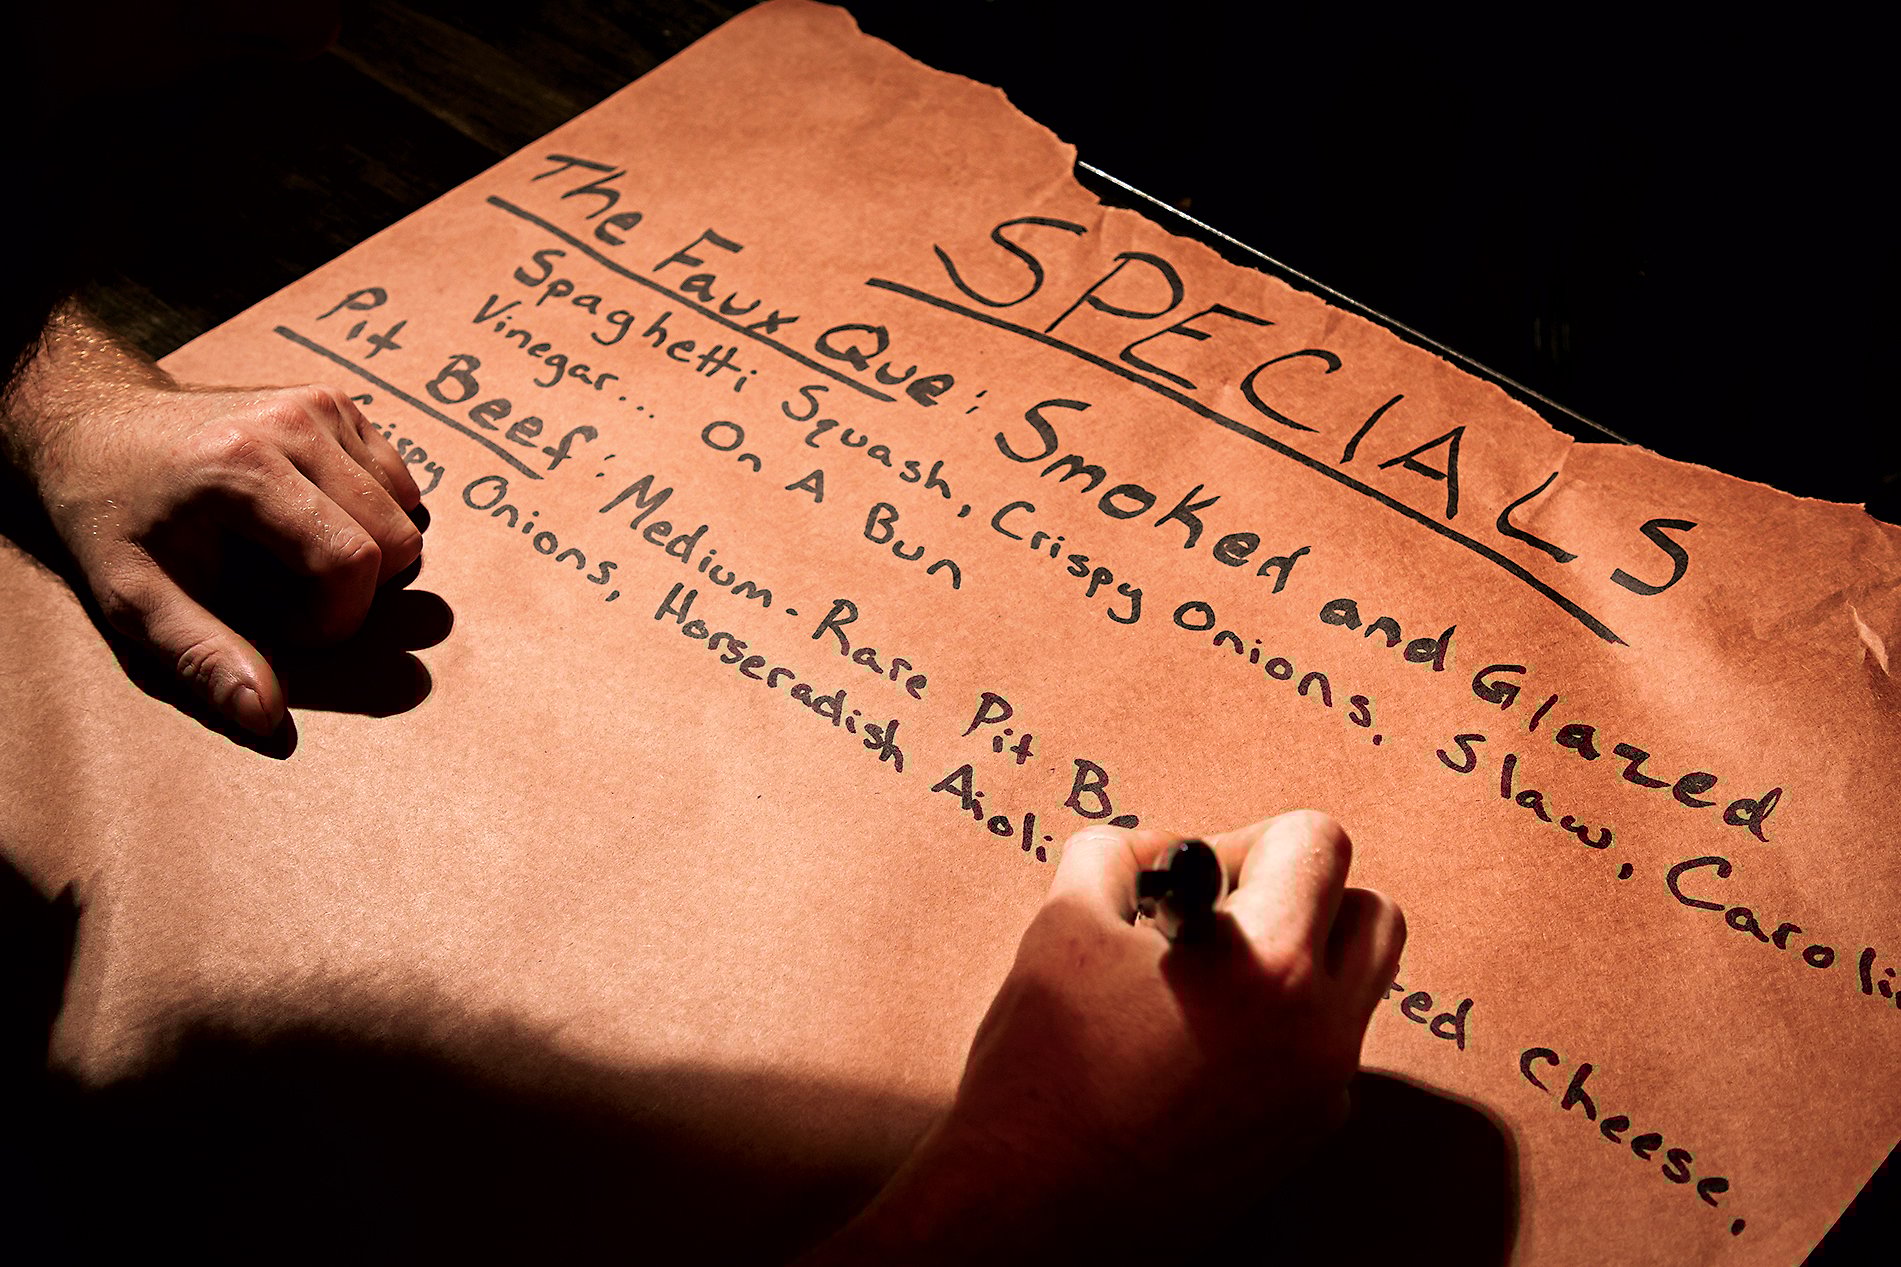 SPECIALS
The Faux Que: Smoked and Glazed
Spaghetti Squash, Crispy Onions, Slaw, Caroli
Vinegar... On A Bun
Pit Beef: Medium-Rare Pit Be ted Cheese,
Crispy Onions, Horseradish Aioli